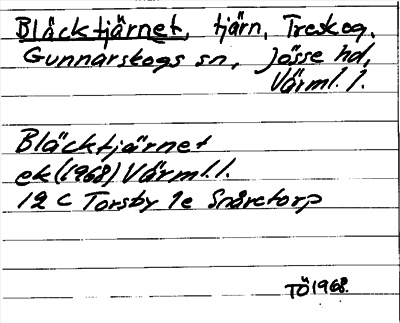 Bläcktjärnet, tjärn, Treskog,
Gunnarskogs sn, Jösse hd,
Värml. l.
Bläcktjärnet
ek (1968) Värml. l.
12 C Torsby 1e Snåretorp
TÖ 1968.